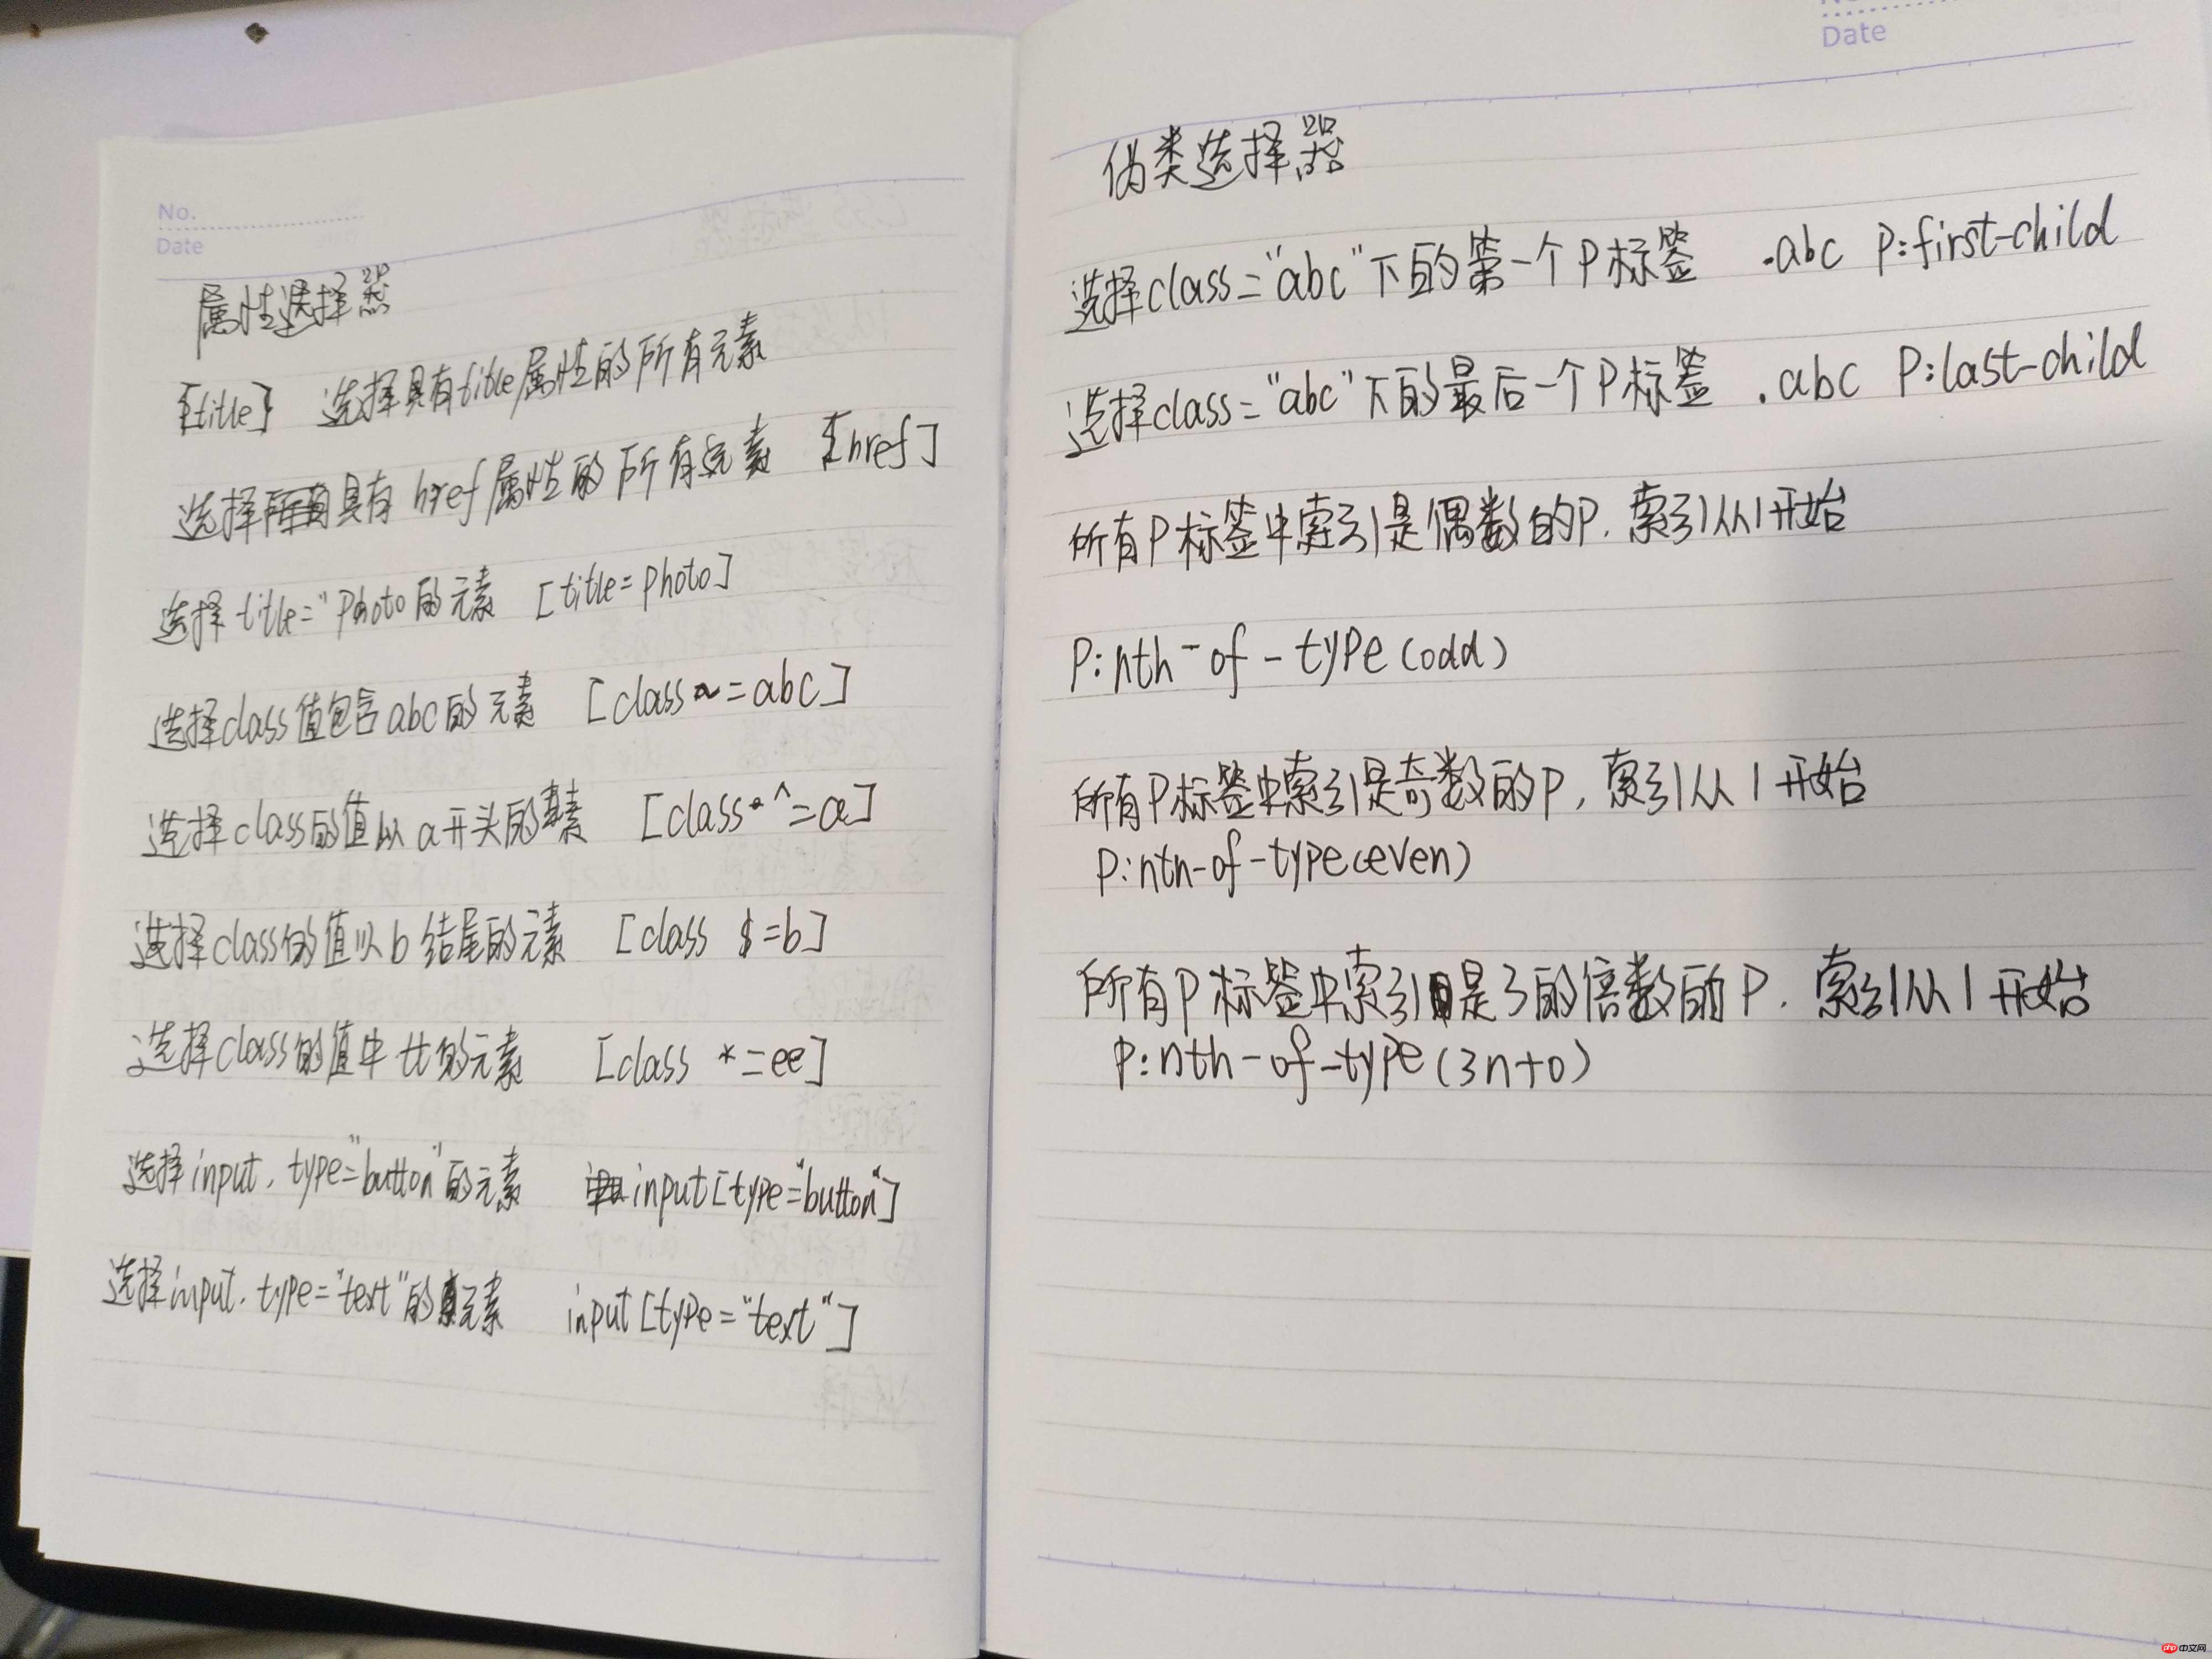 No.
Date
属性选择器
[title] 选择具有title属性的所有元素
选择具有href属性的所有元素 [href]
选择title="Photo的元素 [title=photo]
选择class值包含abc的元素 [class~=abc]
选择class的值以a开头的元素 [class^=a]
选择class的值以b结尾的元素 [class $=b]
选择class的值中tt的元素 [class *=ee]
选择input, type="button"的元素 input[type="button"]
选择input, type="text"的元素 input[type="text"]
Date
伪类选择器
选择class="abc"下的第一个P标签 .abc P:first-child
选择class="abc"下的最后一个P标签 .abc P:last-child
所有P标签中索引是偶数的P, 索引从1开始
P:nth-of-type(odd)
所有P标签中索引是奇数的P, 索引从1开始
P:nth-of-type(even)
所有P标签中索引是3的倍数的P, 索引从1开始
P:nth-of-type(3n+0)
php 中文网